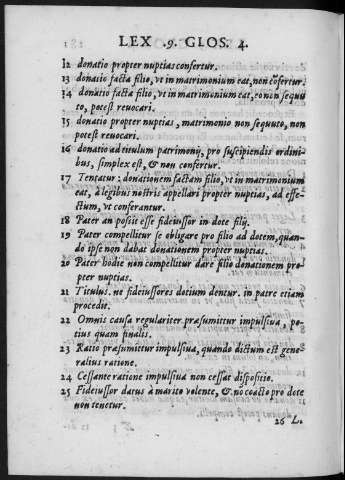 LEX .9. GLOS. 4.
12 donatio propter nuptias confertur.
13 donatio facta filio, vt in matrimonium eat, non cõfertur.
14 donatio facta filio, vt in matrimonium eat, eo non sequu
to, potest reuocari.
15 donatio propter nuptias, matrimonio non sequuto, non
potest reuocari.
16 donatio ad titulum patrimonij, pro suscipiendis ordini-
bus, simplex est, & non confertur.
17 Tentatur: donationem factam filio, vt in matrimonium
eat, à legibus nostris appellari propter nuptias, ad effe-
ctum, vt conferantur.
18 Pater an possit esse fideiussor in dote filij.
19 Pater compellitur se obligare pro filio ad dotem, quan-
do ipse non dabat donationem propter nuptias.
20 Pater hodie non compellitur dare filio donationem pro-
pter nuptias.
21 Titulus. ne fideiussores dotium dentur. in patre etiam
procedit.
22 Omnis causa regulariter præsumitur impulsiua, po-
tius quam finalis.
23 Ratio præsumitur impulsiua, quando dictum est gene-
ralius ratione.
24 Cessante ratione impulsiua non cessat dispositio.
25 Fideiussor datus à marito volente, & nõ coacto pro dote
non tenetur.
26 L.